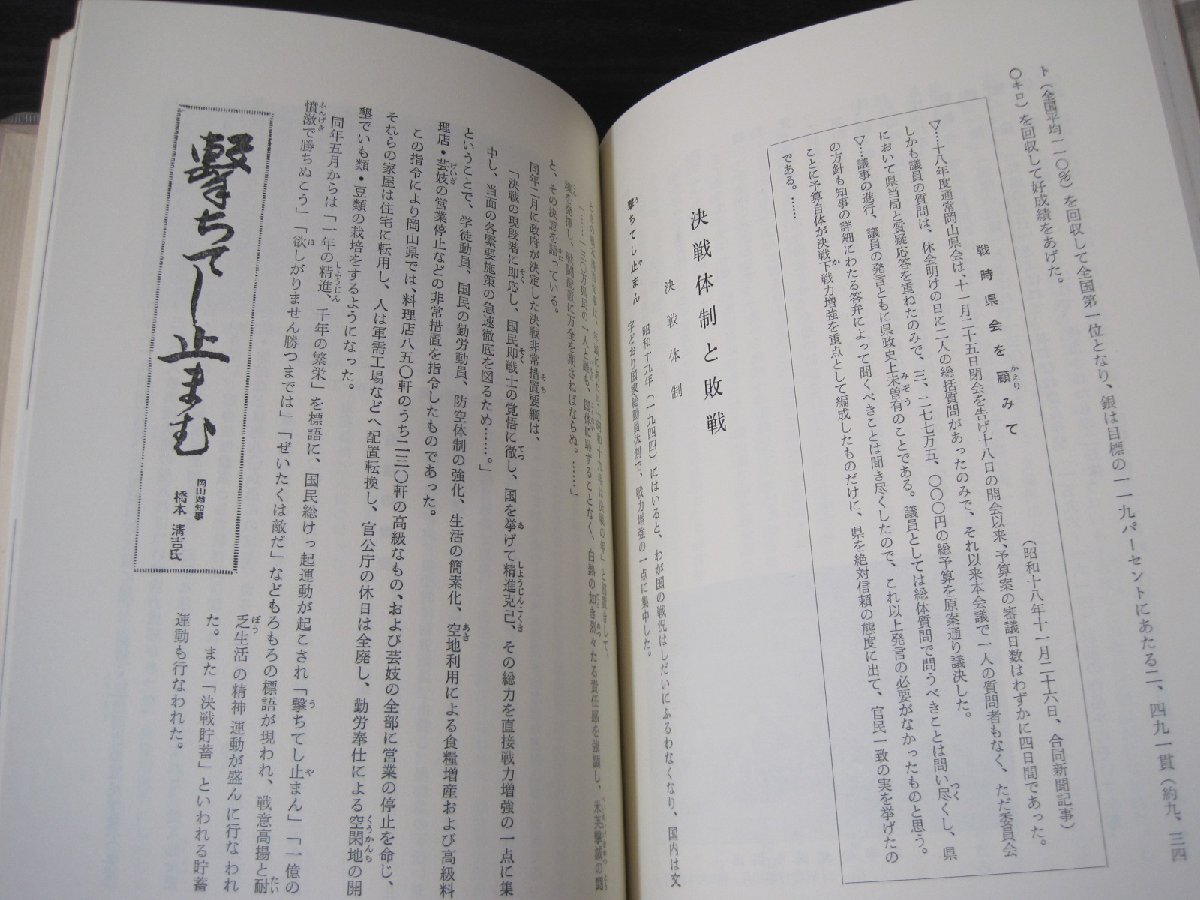 ト（全国平均一一〇％）を回収して全国第一位となり、銀は目標の一一九パーセントにあたる二、四九一貫（約九、三四
〇キロ）を回収して好成績をあげた。
戦時県会を顧みて
（昭和十八年十一月二十六日、合同新聞記事）
▽…十八年度通常岡山県会は、十一月二十五日閉会を告げ十八日の開会以来予算案の審議日数はわずかに四日間であった。
しかも議員の質問は、休会明けの日に二人の総括質問があったのみで、それ以来本会議で一人の質問者もなく、ただ委員会
において県当局と質疑応答を重ねたのみで、三、二七七万五、〇〇〇円の総予算を原案通り議決した。
▽…議事の進行、議員の発言ともに県政史上未曽有のことである。議員としては総体質問で問うべきことは問い尽くし、県
の方針も知事の詳細にわたる答弁によって聞くべきことは聞き尽くしたので、これ以上発言の必要がなかったものと思う。
ことに予算自体が決戦下戦力増強を重点として編成したものだけに、県を絶対信頼の態度に出て、官民一致の実を挙げたの
である。……
決戦体制と敗戦
決戦体制
撃ちてし止まん 昭和十九年（一九四四）にはいると、わが国の戦況はしだいにふるわなくなり、国内は文
字どおり国家総動員体制で、戦力増強の一点に集中した。
と、その決意を語っている。
同年二月に政府が決定した決戦非常措置要綱は、
「決戦の現段階に即応し、国民即戦士の覚悟に徹し、国を挙げて精進克己、その総力を直接戦力増強の一点に集
中し、当面の各緊要施策の急速徹底を図るため……。」
ということで、学徒動員、国民の勤労動員、防空体制の強化、生活の簡素化、空地利用による食糧増産および高級料
理店・芸妓の営業停止などの非常措置を指令したものであった。
この指令により岡山県では、料理店八五〇軒のうち二三〇軒の高級なもの、および芸妓の全部に営業の停止を命じ、
それらの家屋は住宅に転用し、人は軍需工場などへ配置転換し、官公庁の休日は全廃し、勤労奉仕による空閑地の開
墾でいも類・豆類の栽培をするようになった。
同年五月からは「一年の精進、千年の繁栄」を標語に、国民総けっ起運動が起こされ「撃ちてし止まん」「一億の
憤激で勝ちぬこう」「欲しがりません勝つまでは」「ぜいたくは敵だ」などもろもろの標語が現われ、戦意高揚と耐
乏生活の精神運動が盛んに行なわれ
た。また「決戦貯蓄」といわれる貯蓄
運動も行なわれた。
撃ちてし止まむ
岡山県知事
橋本清吉氏